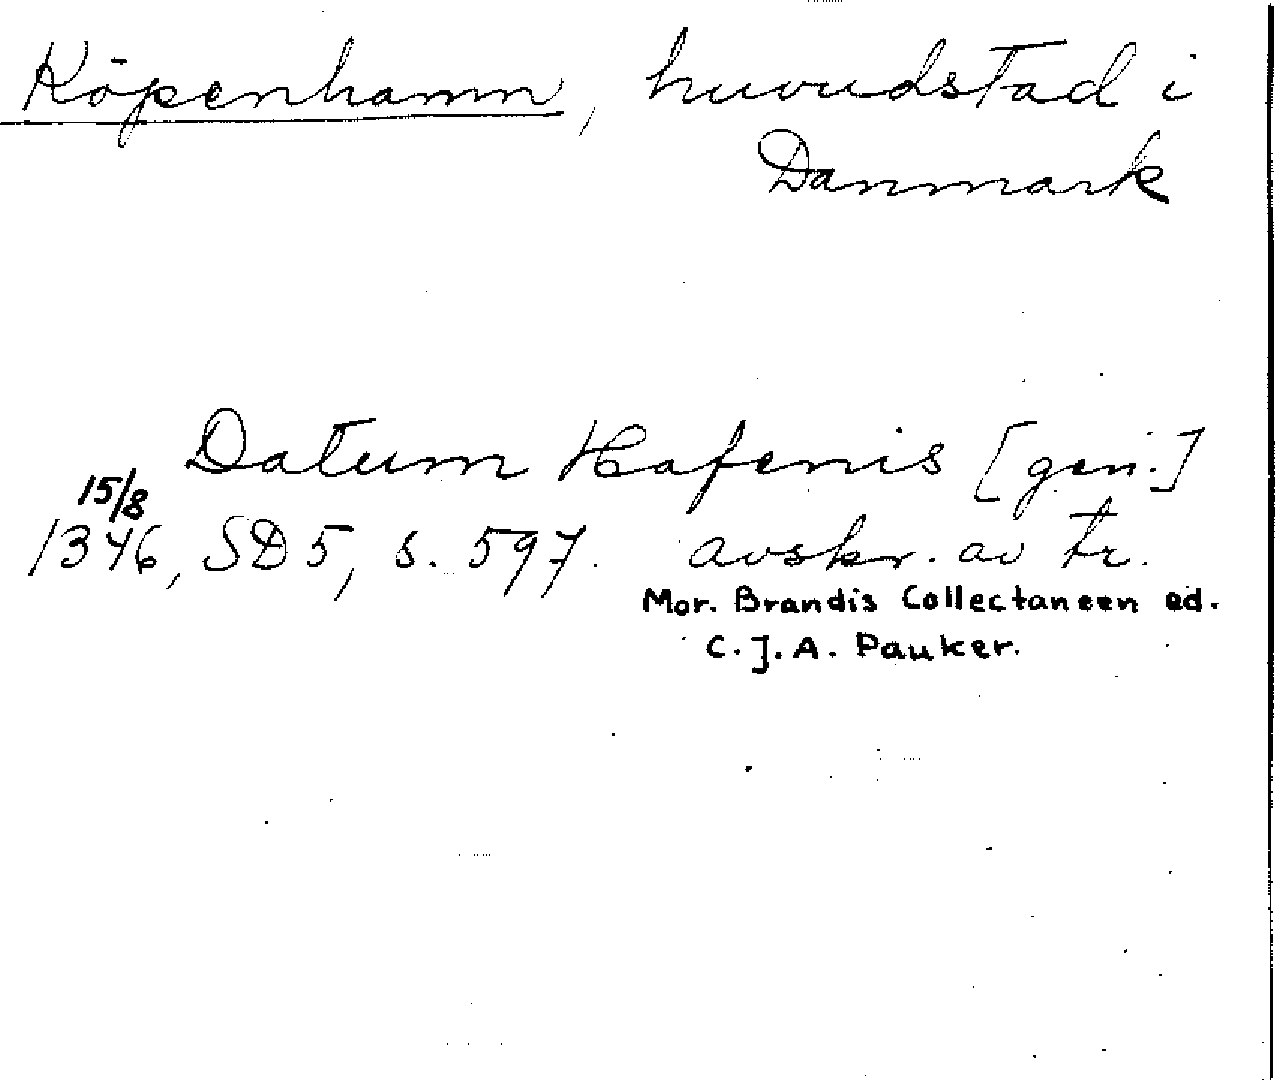 Köpenhamn, huvudstad i
Danmark
Datum Hafenis [gen.]
15/8
1346, SD 5, s. 597. avskr. av tr.
Mor. Brandis Collectaneen ed.
C. J. A. Pauker.